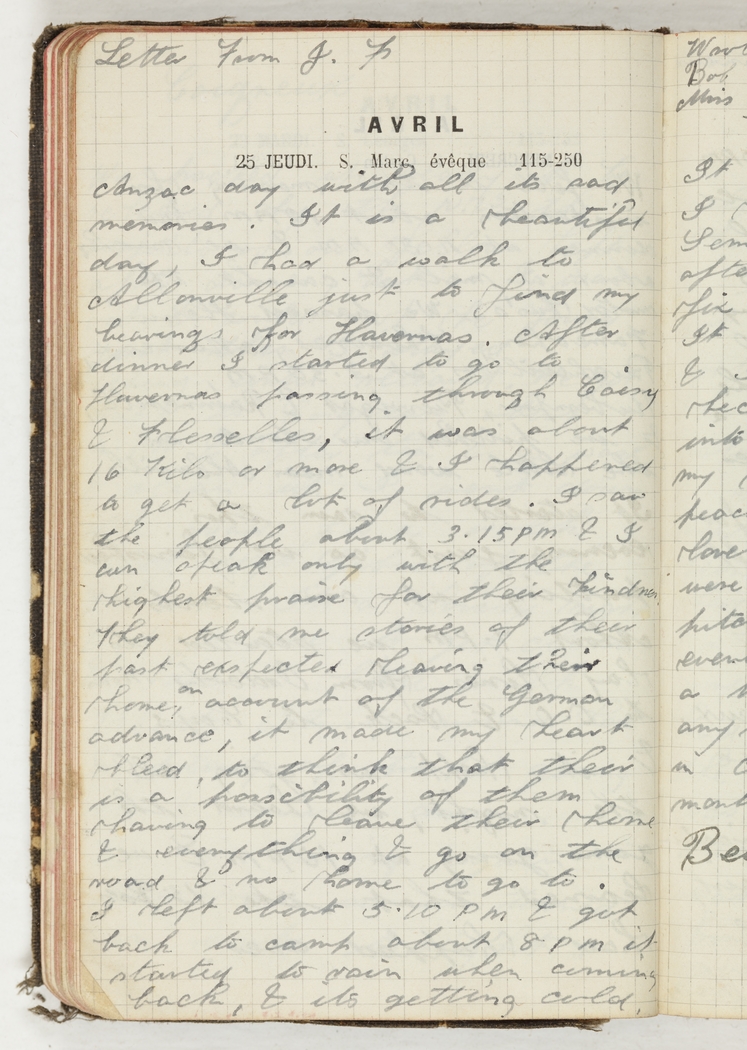 Letter From J. F
AVRIL
25 JEUDI. S. Marc, évêque 115-250
Anzac day with all its sad
memories. It is a beautiful
day, I had a walk to
Allonville just to find my
bearings for Havernas. After
dinner I started to go to
Havernas passing through Coisy
& Flesselles, it was about
16 Kilo or more & I happened
to get a lot of rides. I saw
the people about 3.15 pm & I
can speak only with the
highest praise for their kindness
They told me stories of their
past expected leaving their
home, on account of the German
advance, it made my heart
bleed, to think that their
is a possibility of them
having to leave their home
& everything & go on the
road & no home to go to.
I left about 5.10 PM & got
back to camp about 8 PM it
startey to rain when coming
back, & its getting cold.
Bob
Miss
It
I
after
fix
It
&
into
my
peac
were
even
a
any
in